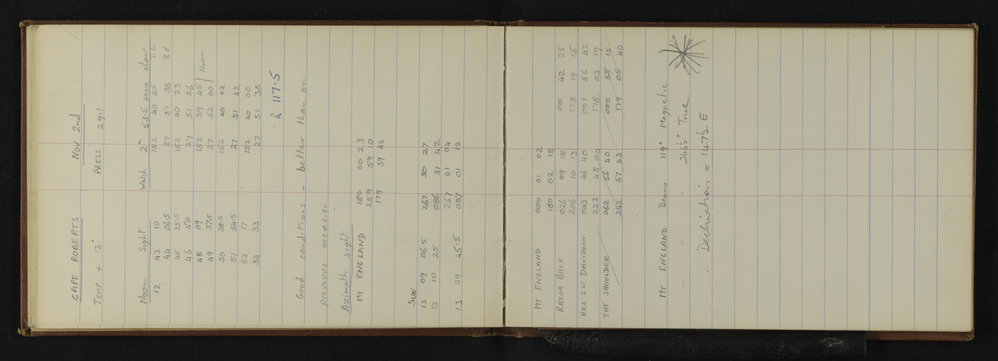 CAPE ROBERTS NOV 2nd
TEMP + 13° PRESS 29.1
Noon Sight Watch 2m 53.5 secs slow
12 43 10 152 40 55 T.L
44 06.5 27 51 38 B.R.
45 35.5 152 40 23
46 50 27 51 56
48 09 152 39 45 Noon
49 37.5 27 52 00
50 38.5 152 40 02
51 54.5 27 51 42
53 17 152 40 00
54 33 27 51 38
λ 117.5
Good conditions - better than on
previous occasion
Azimuth sight
MT ENGLAND 180 00 23
359 59 10
179 59 46
SUN
13 09 06.5 267 30 27
13 10 25 086 31 42
267 01 04
13 09 45.5 087 01 18
MT ENGLAND 000 01 02
180 02 18
RAZOR BACK 026 09 18 001 42 25
206 10 13 178 19 15
HILL S.W. DAVIDSON 043 46 40 001 56 42
223 48 00 178 03 19
THE SHOULDER 062 56 40 000 55 15
242 57 43 179 05 40
MT ENGLAND Bears 119° Magnetic
" " 266½° True
∴ Declination = 147½ E